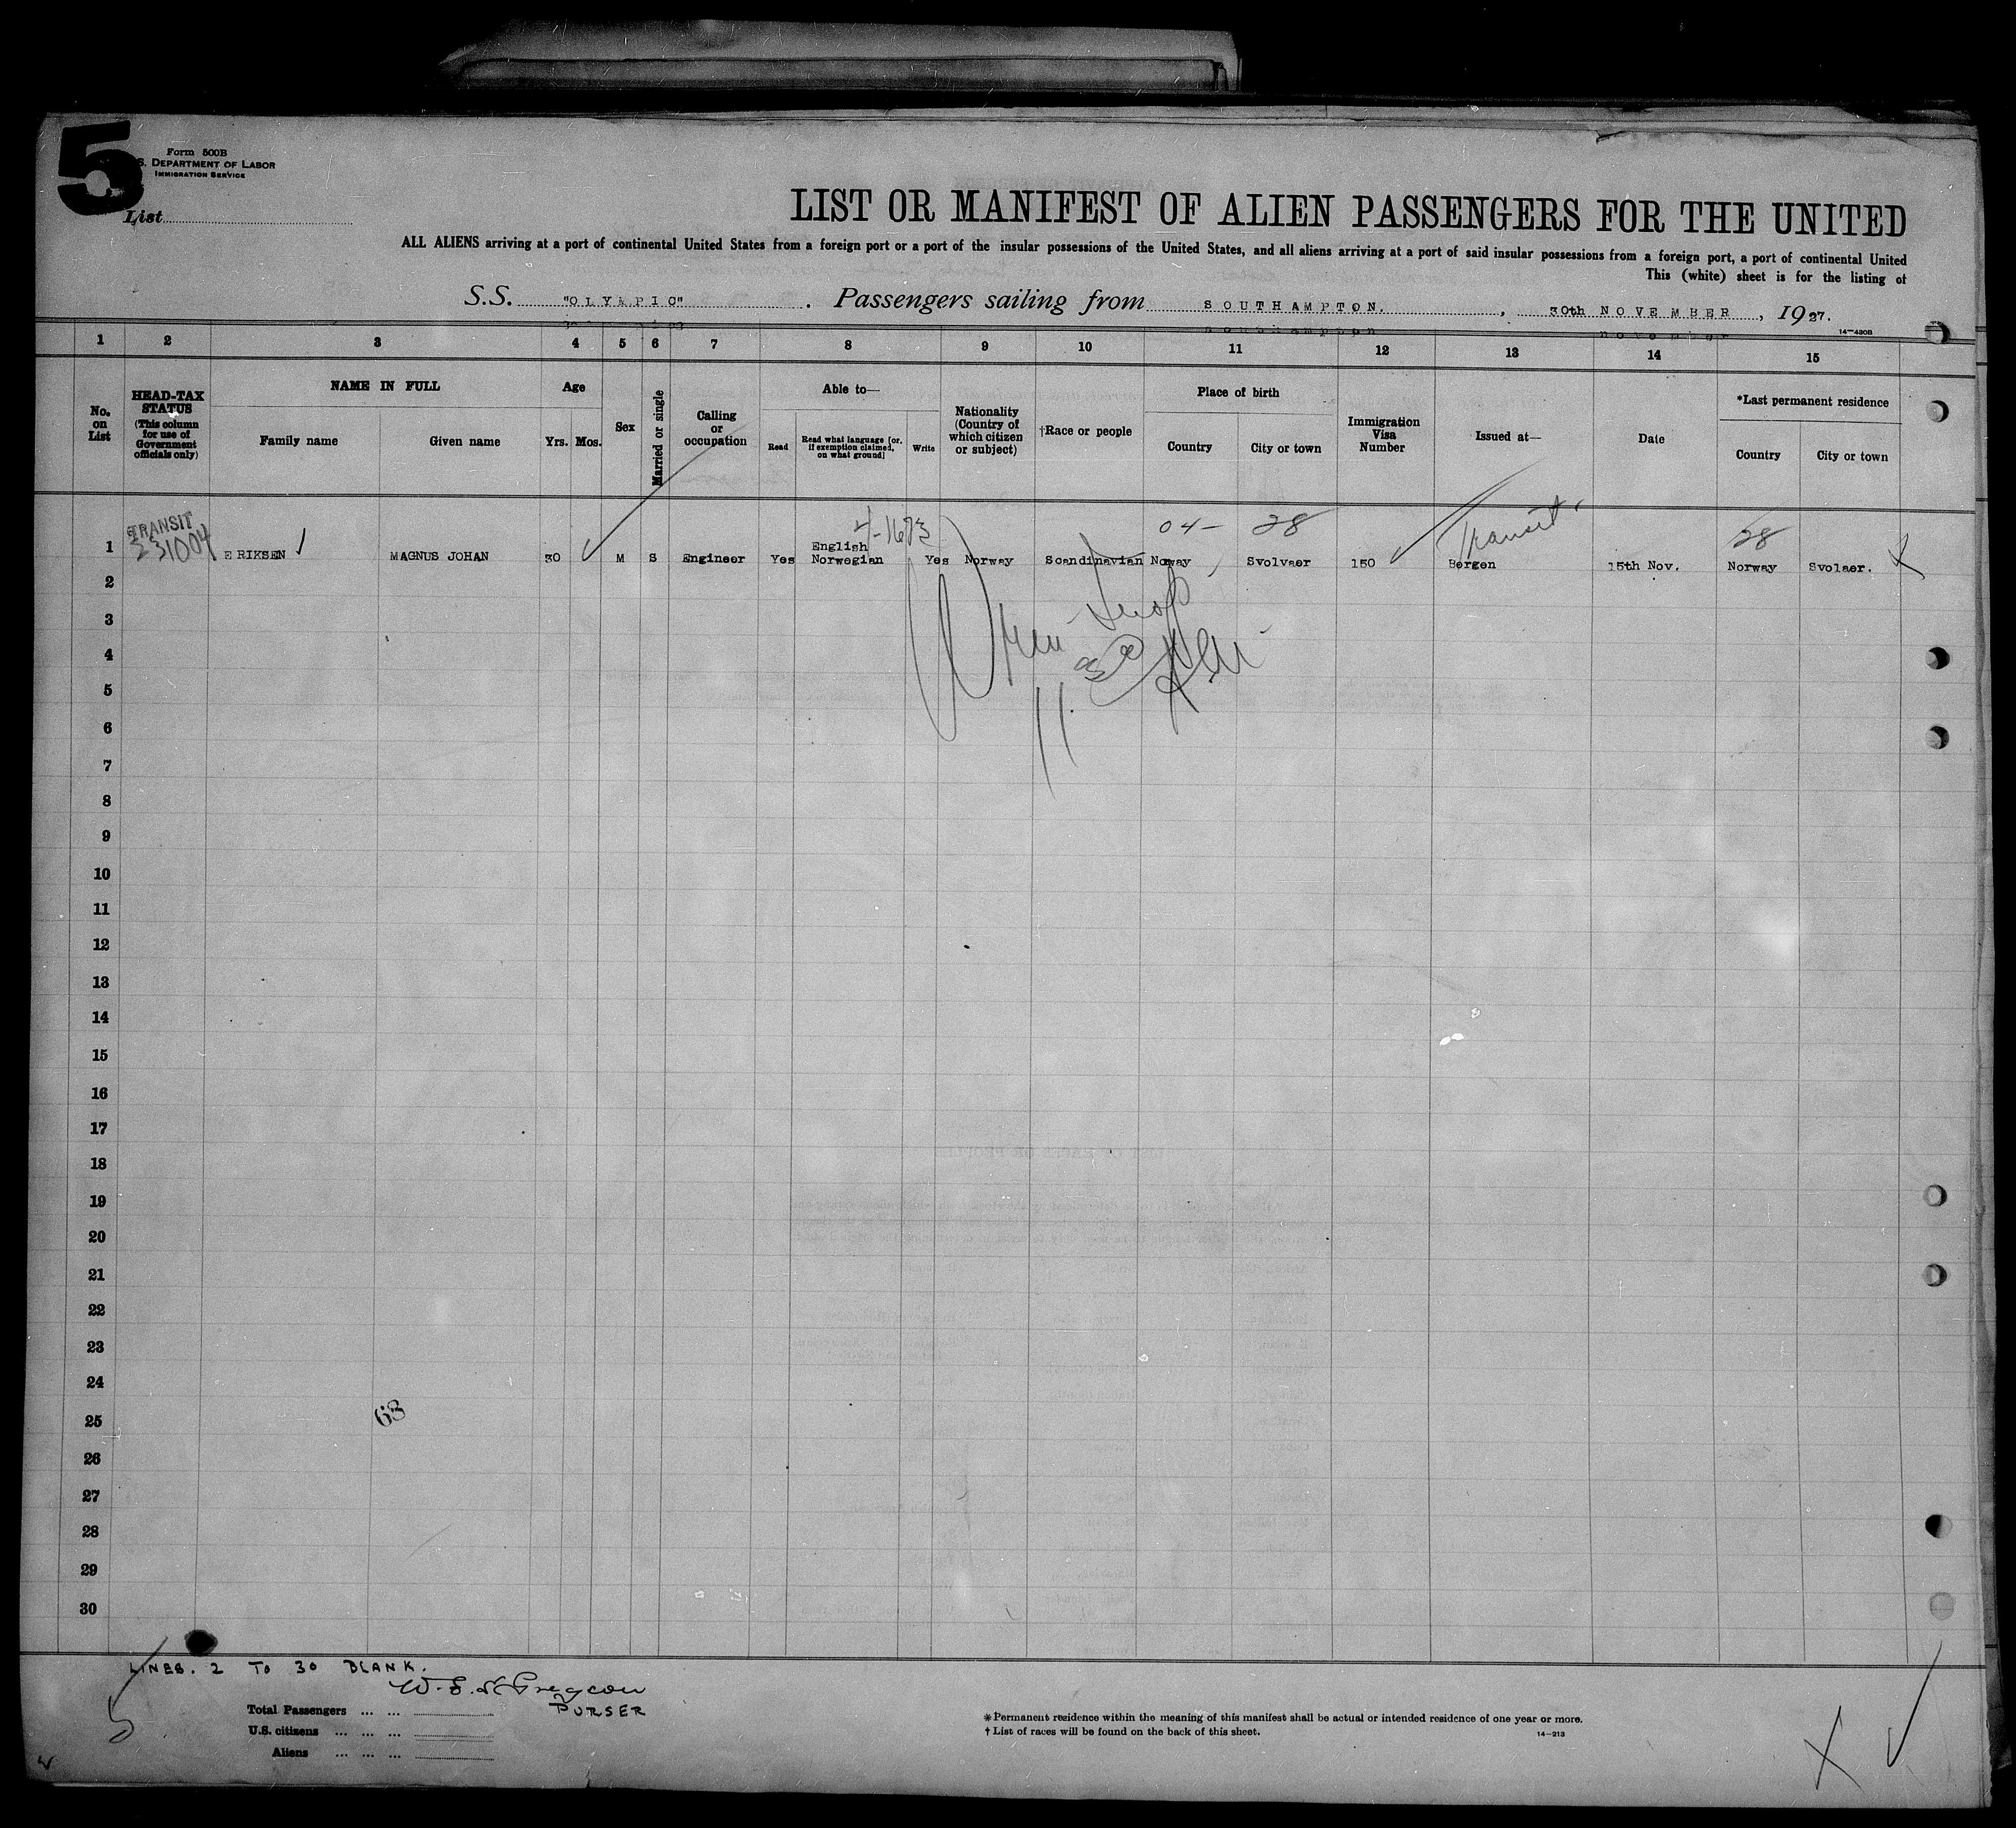 5
Form 500B
S. DEPARTMENT OF LABOR
IMMIGRATION SERVICE
List
LIST OR MANIFEST OF ALIEN PASSENGERS FOR THE UNITED
ALL ALIENS arriving at a port of continental United States from a foreign port or a port of the insular possessions of the United States, and all aliens arriving at a port of said insular possessions from a foreign port, a port of continental United
This (white) sheet is for the listing of
S.S. "OLYMPIC". Passengers sailing from SOUTHAMPTON, 30th NOVEMBER, 1927.
14-430B
1 2 3 4 5 6 7 8 9 10 11 12 13 14 15
No. on List
HEAD-TAX STATUS (This column for use of Government officials only)
NAME IN FULL
Family name Given name
Age
Yrs. Mos.
Sex
Married or single
Calling or occupation
Able to—
Read Read what language [or, if exemption claimed, on what ground] Write
Nationality (Country of which citizen or subject)
†Race or people
Place of birth
Country City or town
Immigration Visa Number
Issued at—
Date
*Last permanent residence
Country City or town
TRANSIT 4-1673 04- 28 Transit 28
231004
1 ERIKSEN MAGNUS JOHAN 30 M S Engineer Yes English Norwegian Yes Norway Scandinavian Noway Svolvaer 150 Bergen 15th Nov. Norway Svolaer.
2
3
4
5
6
7
8
9
10
11
12
13
14
15
16
17
18
19
20
21
22
23
24
25
26
27
28
29
30
63
LINES. 2 TO 30 BLANK.
PURSER
Total Passengers ... ...
U.S. citizens ... ... ...
Aliens ... ... ...
* Permanent residence within the meaning of this manifest shall be actual or intended residence of one year or more.
† List of races will be found on the back of this sheet.
14-213